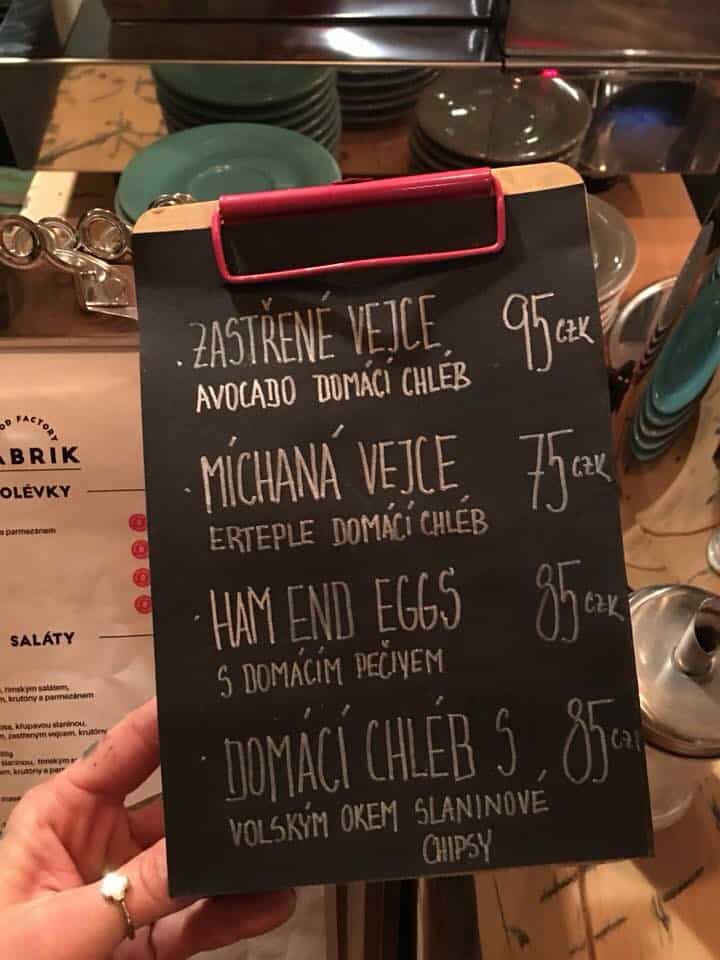 ZASTŘENÉ VEJCE 95 CZK
AVOCADO DOMÁCÍ CHLÉB
MÍCHANÁ VEJCE 75 CZK
ERTEPLE DOMÁCÍ CHLÉB
HAM END EGGS 85 CZK
S DOMÁCÍM PEČIVEM
DOMÁCÍ CHLÉB S 85 CZK
VOLSKÝM OKEM SLANINOVÉ
CHIPSY
OD FACTORY
ABRIK
OLÉVKY
a parmezánem
SALÁTY
římským salátem,
krutóny a parmezánem
křupavou slaninou,
zastřeným vejcem, krutóny
slaninou,
krutóny a par